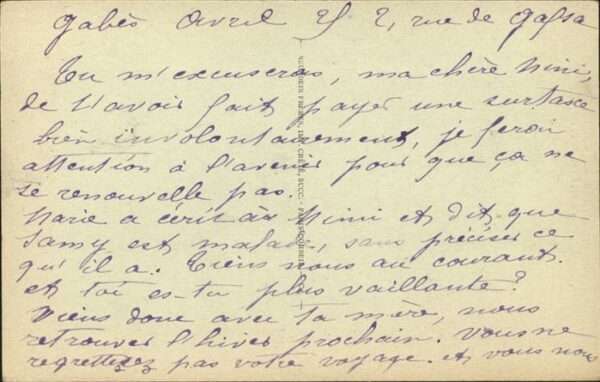 Gabès Avril 2, rue de Gafsa
Tu m'excuseras, ma chère Mimi,
de t'avoir fait payer une surtaxe
bien involontairement, je ferai
attention à l'avenir pour que ça ne
se renouvelle pas.
Marie a écrit à Mimi et dit que
Samy est malade, sans préciser ce
qu'il a. Tiens nous au courant.
et toi es-tu plus vaillante?
Viens donc avec ta mère, nous
retrouver l'hiver prochain. Vous ne
regretterez pas votre voyage. et vous nous